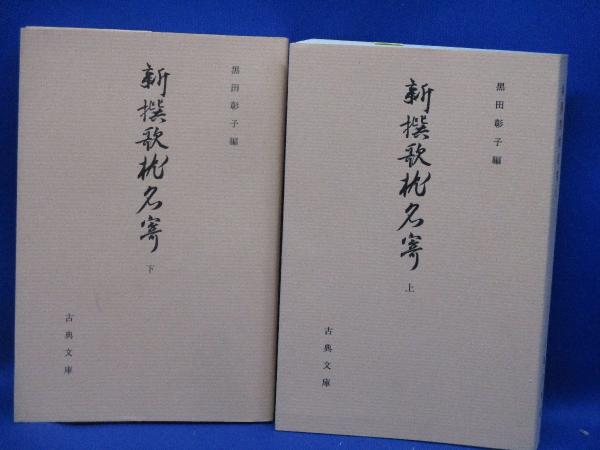 黒田彰子編
新撰歌枕名寄
上
古典文庫
黒田彰子編
新撰歌枕名寄
下
古典文庫